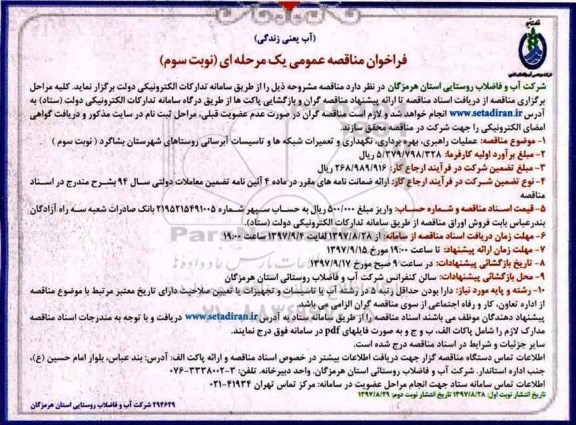 (آب یعنی زندگی)
فراخوان مناقصه عمومی یک مرحله ای (نوبت سوم)
شرکت آب و فاضلاب روستایی استان هرمزگان در نظر دارد مناقصه مشروحه ذیل را از طریق سامانه تدارکات الکترونیکی دولت برگزار نماید. کلیه مراحل
برگزاری مناقصه از دریافت اسناد مناقصه تا ارائه پیشنهاد مناقصه گران و بازگشایی پاکت ها از طریق درگاه سامانه تدارکات الکترونیکی دولت (ستاد) به
آدرس www.setadiran.ir انجام خواهد شد و لازم است مناقصه گران در صورت عدم عضویت قبلی، مراحل ثبت نام در سایت مذکور و دریافت گواهی
امضای الکترونیکی را جهت شرکت در مناقصه محقق سازند.
۱- موضوع مناقصه: عملیات راهبری، بهره برداری، نگهداری و تعمیرات شبکه ها و تاسیسات آبرسانی روستاهای شهرستان بشاگرد ( نوبت سوم )
۲- مبلغ برآورد اولیه کارفرما: ۵/۳۷۹/۷۹۸/۳۲۸ ریال
۳- مبلغ تضمین شرکت در فرآیند ارجاع کار: ۲۶۸/۹۸۹/۹۱۶ ریال
۴- نوع تضمین شرکت در فرآیند ارجاع کار: ارائه ضمانت نامه های مقرر در ماده ۴ آئین نامه تضمین معاملات دولتی سال ۹۴ بشرح مندرج در اسناد
مناقصه
۵- قیمت اسناد مناقصه و شماره حساب: واریز مبلغ ۵۰۰/۰۰۰ ریال به حساب سپهر شماره ۲۱۹۵۲۱۵۴۹۱۰۰۵ بانک صادرات شعبه سه راه آزادگان
بندرعباس بابت فروش اوراق مناقصه از طریق سامانه تدارکات الکترونیکی دولت (ستاد).
۶- مهلت زمان دریافت اسناد مناقصه از سامانه: از ۱۳۹۷/۸/۲۸ لغایت ۱۳۹۷/۹/۴ ساعت ۱۹:۰۰
۷- مهلت زمان ارائه پیشنهاد: تا ساعت ۱۹:۰۰ مورخ ۱۳۹۷/۹/۱۵
۸- تاریخ بازگشائی پیشنهادات: در ساعت ۹ صبح مورخ ۱۳۹۷/۹/۱۷
۹- محل بازگشائی پیشنهادات: سالن کنفرانس شرکت آب و فاضلاب روستائی استان هرمزگان
۱۰- رشته و پایه مورد نیاز: دارا بودن حداقل رتبه ۵ در رشته آب یا تاسیسات و تجهیزات یا تعیین صلاحیت دارای تاریخ معتبر مرتبط با موضوع مناقصه
از اداره تعاون، کار و رفاه اجتماعی از سوی مناقصه گران الزامی می باشد.
پیشنهاد دهندگان موظف می باشند اسناد مناقصه را از طریق سامانه ستاد به آدرس www.setadiran.ir دریافت و با توجه به مندرجات اسناد مناقصه
مدارک لازم را شامل پاکات الف، ب و ج و به صورت فایلهای pdf در سامانه فوق درج نمایند.
سایر جزئیات و شرایط در اسناد مناقصه درج شده است.
اطلاعات تماس دستگاه مناقصه گزار جهت دریافت اطلاعات بیشتر در خصوص اسناد مناقصه و ارائه پاکت الف: آدرس: بندعباس، بلوار امام حسین (ع)،
جنب اداره استاندارد. شرکت آب و فاضلاب روستائی استان هرمزگان. واحد دبیرخانه. تلفن: ۳-۳۳۳۸۰۰۲-۰۷۶
اطلاعات تماس سامانه ستاد جهت انجام مراحل عضویت در سامانه: مرکز تماس تهران ۴۱۹۳۴-۰۲۱
تاریخ انتشار نوبت اول: ۱۳۹۷/۸/۲۸ تاریخ انتشار نوبت دوم: ۱۳۹۷/۸/۲۹
۲۹۴۶۴۹ شرکت آب و فاضلاب روستایی استان هرمزگان